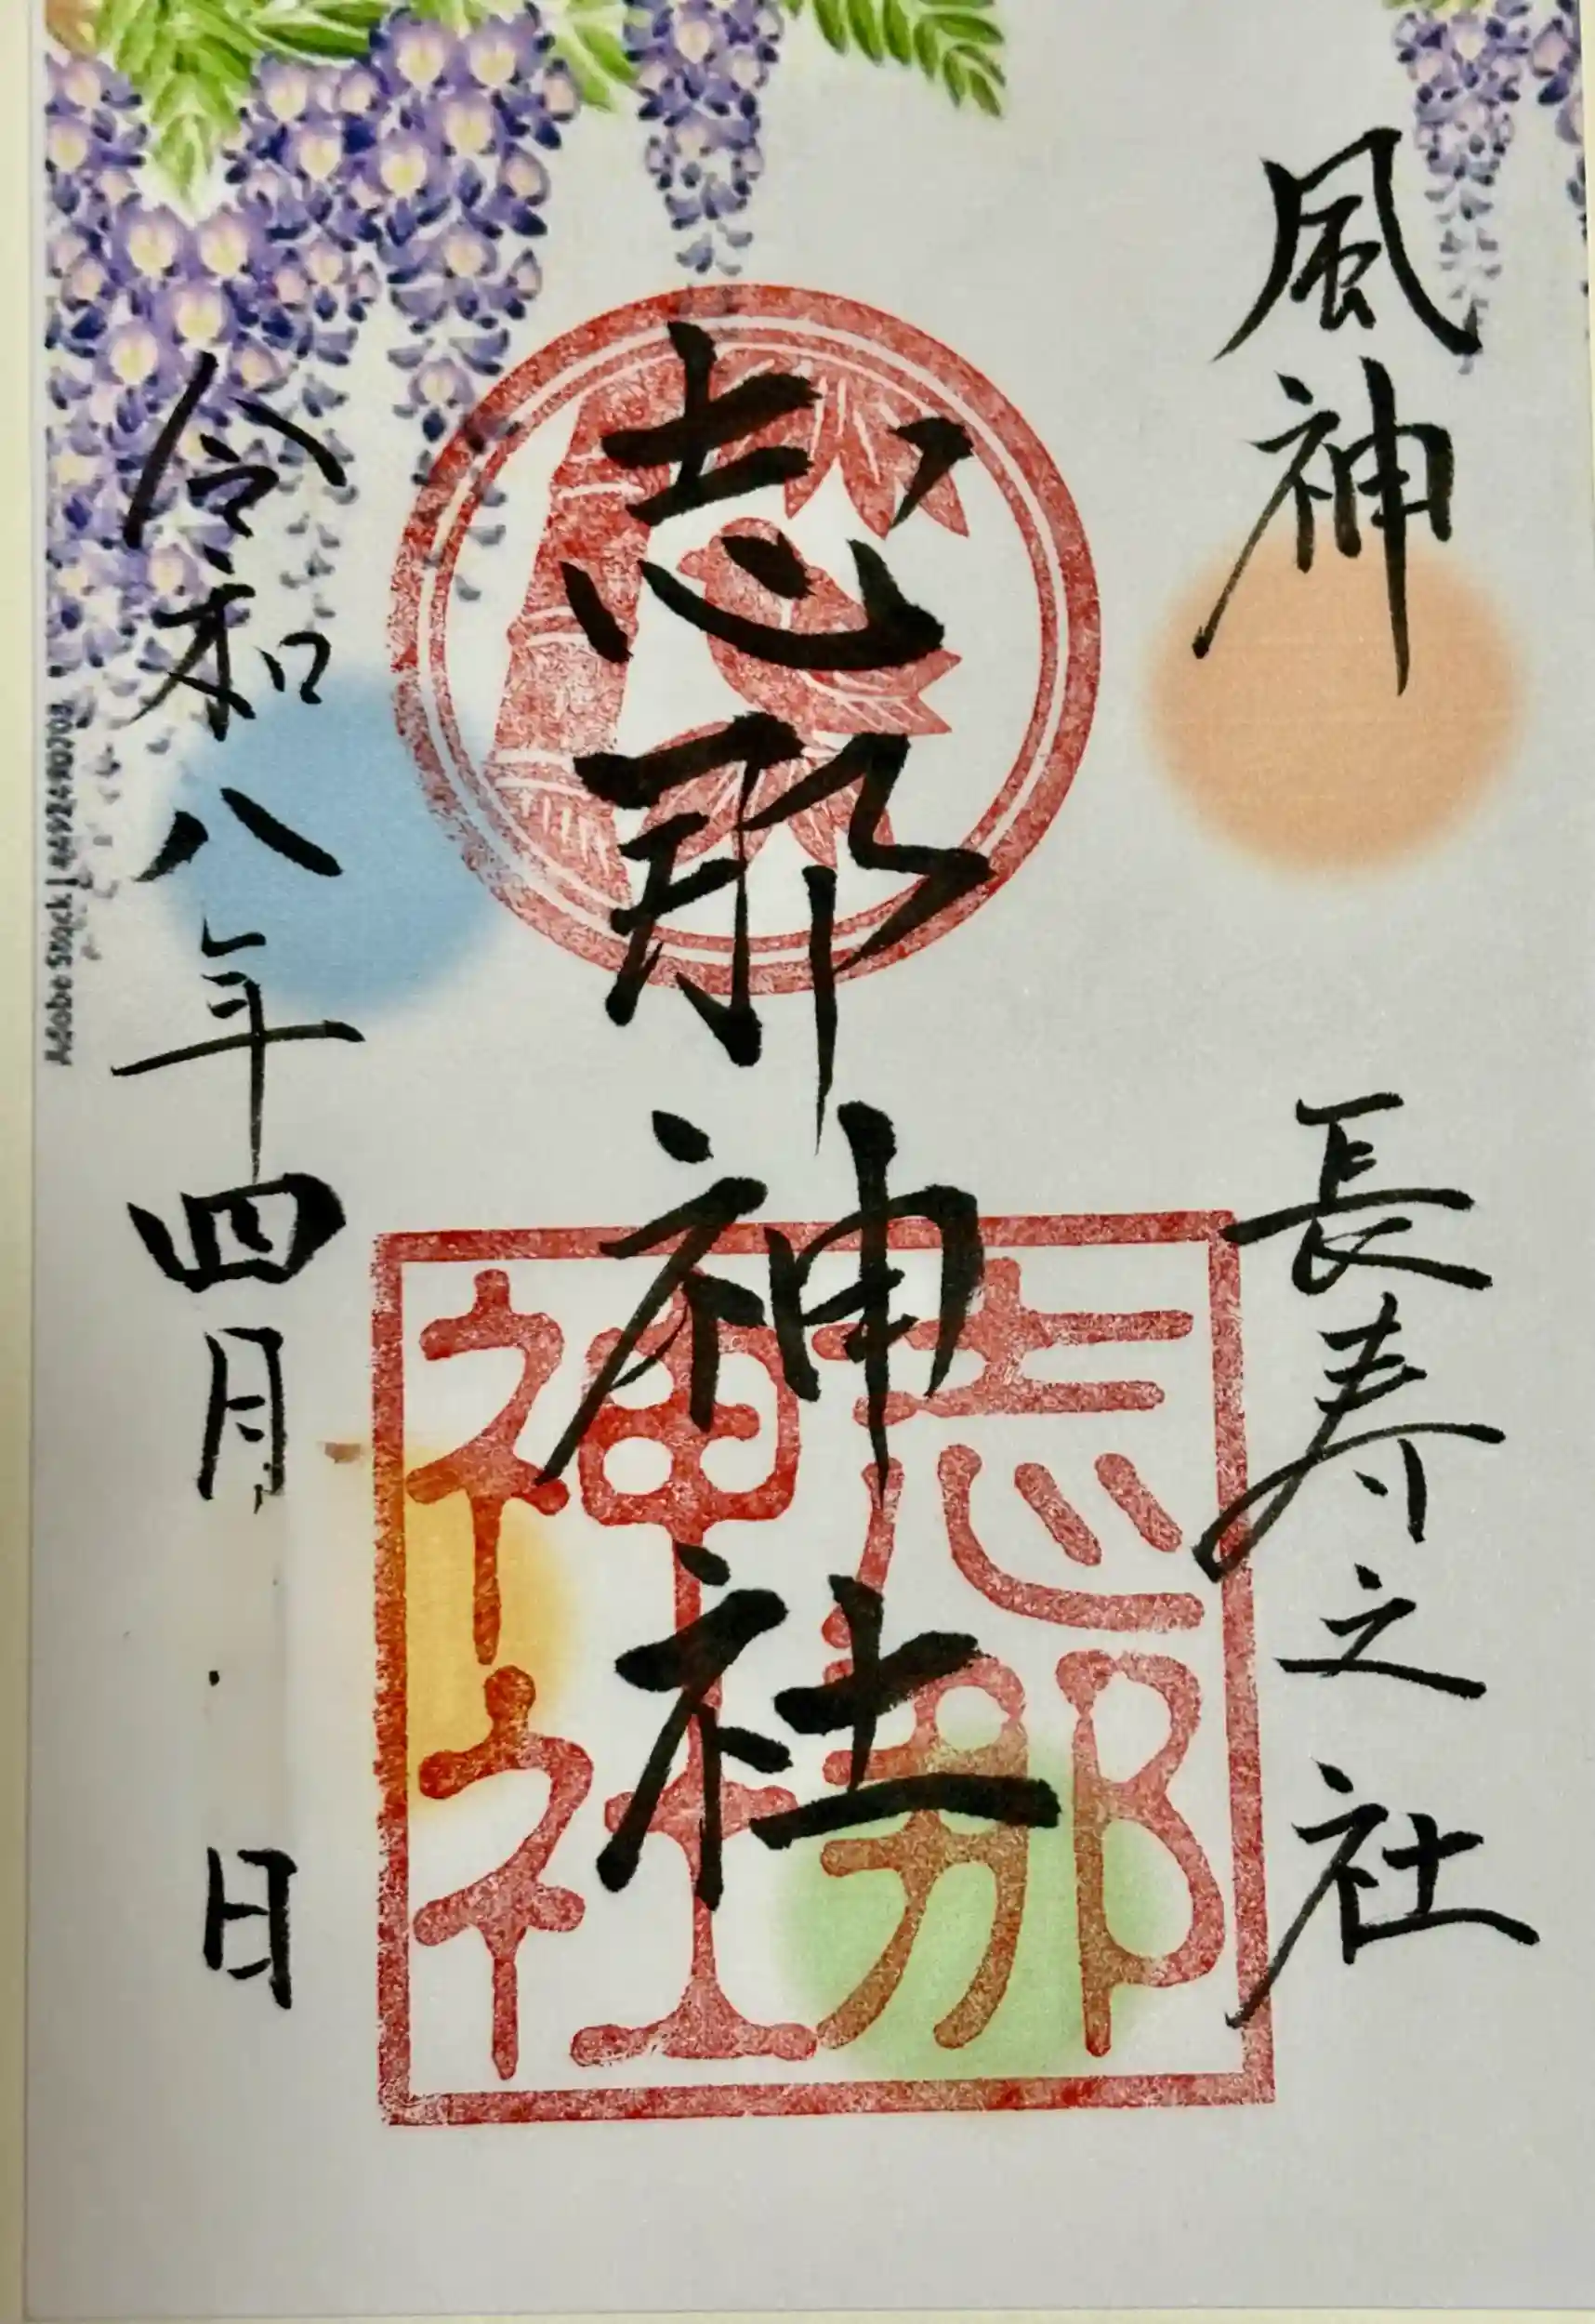 風神 長寿之社
志那神社
志那神社
令和八年四月 日
Adobe Stock |